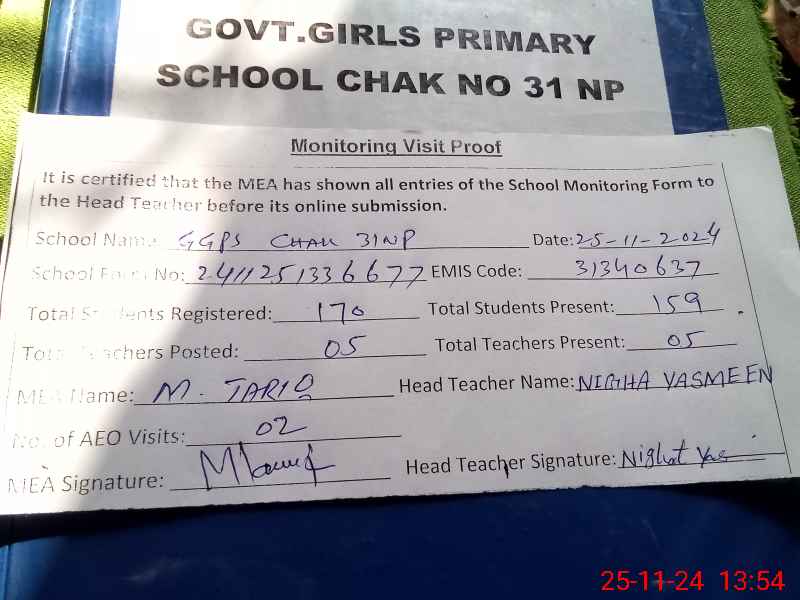 GOVT.GIRLS PRIMARY
SCHOOL CHAK NO 31 NP
Monitoring Visit Proof
It is certified that the MEA has shown all entries of the School Monitoring Form to
the Head Teacher before its online submission.
School Name: GGPS CHAK 31NP Date: 25-11-2024
School Form No: 2411251336677 EMIS Code: 31340637
Total Students Registered: 170 Total Students Present: 159
Total Teachers Posted: 05 Total Teachers Present: 05
MEA Name: M. TARIQ Head Teacher Name: NIGHA YASMEEN
No. of AEO Visits: 02
MEA Signature: Head Teacher Signature: Nighat Yas
25-11-24 13:54